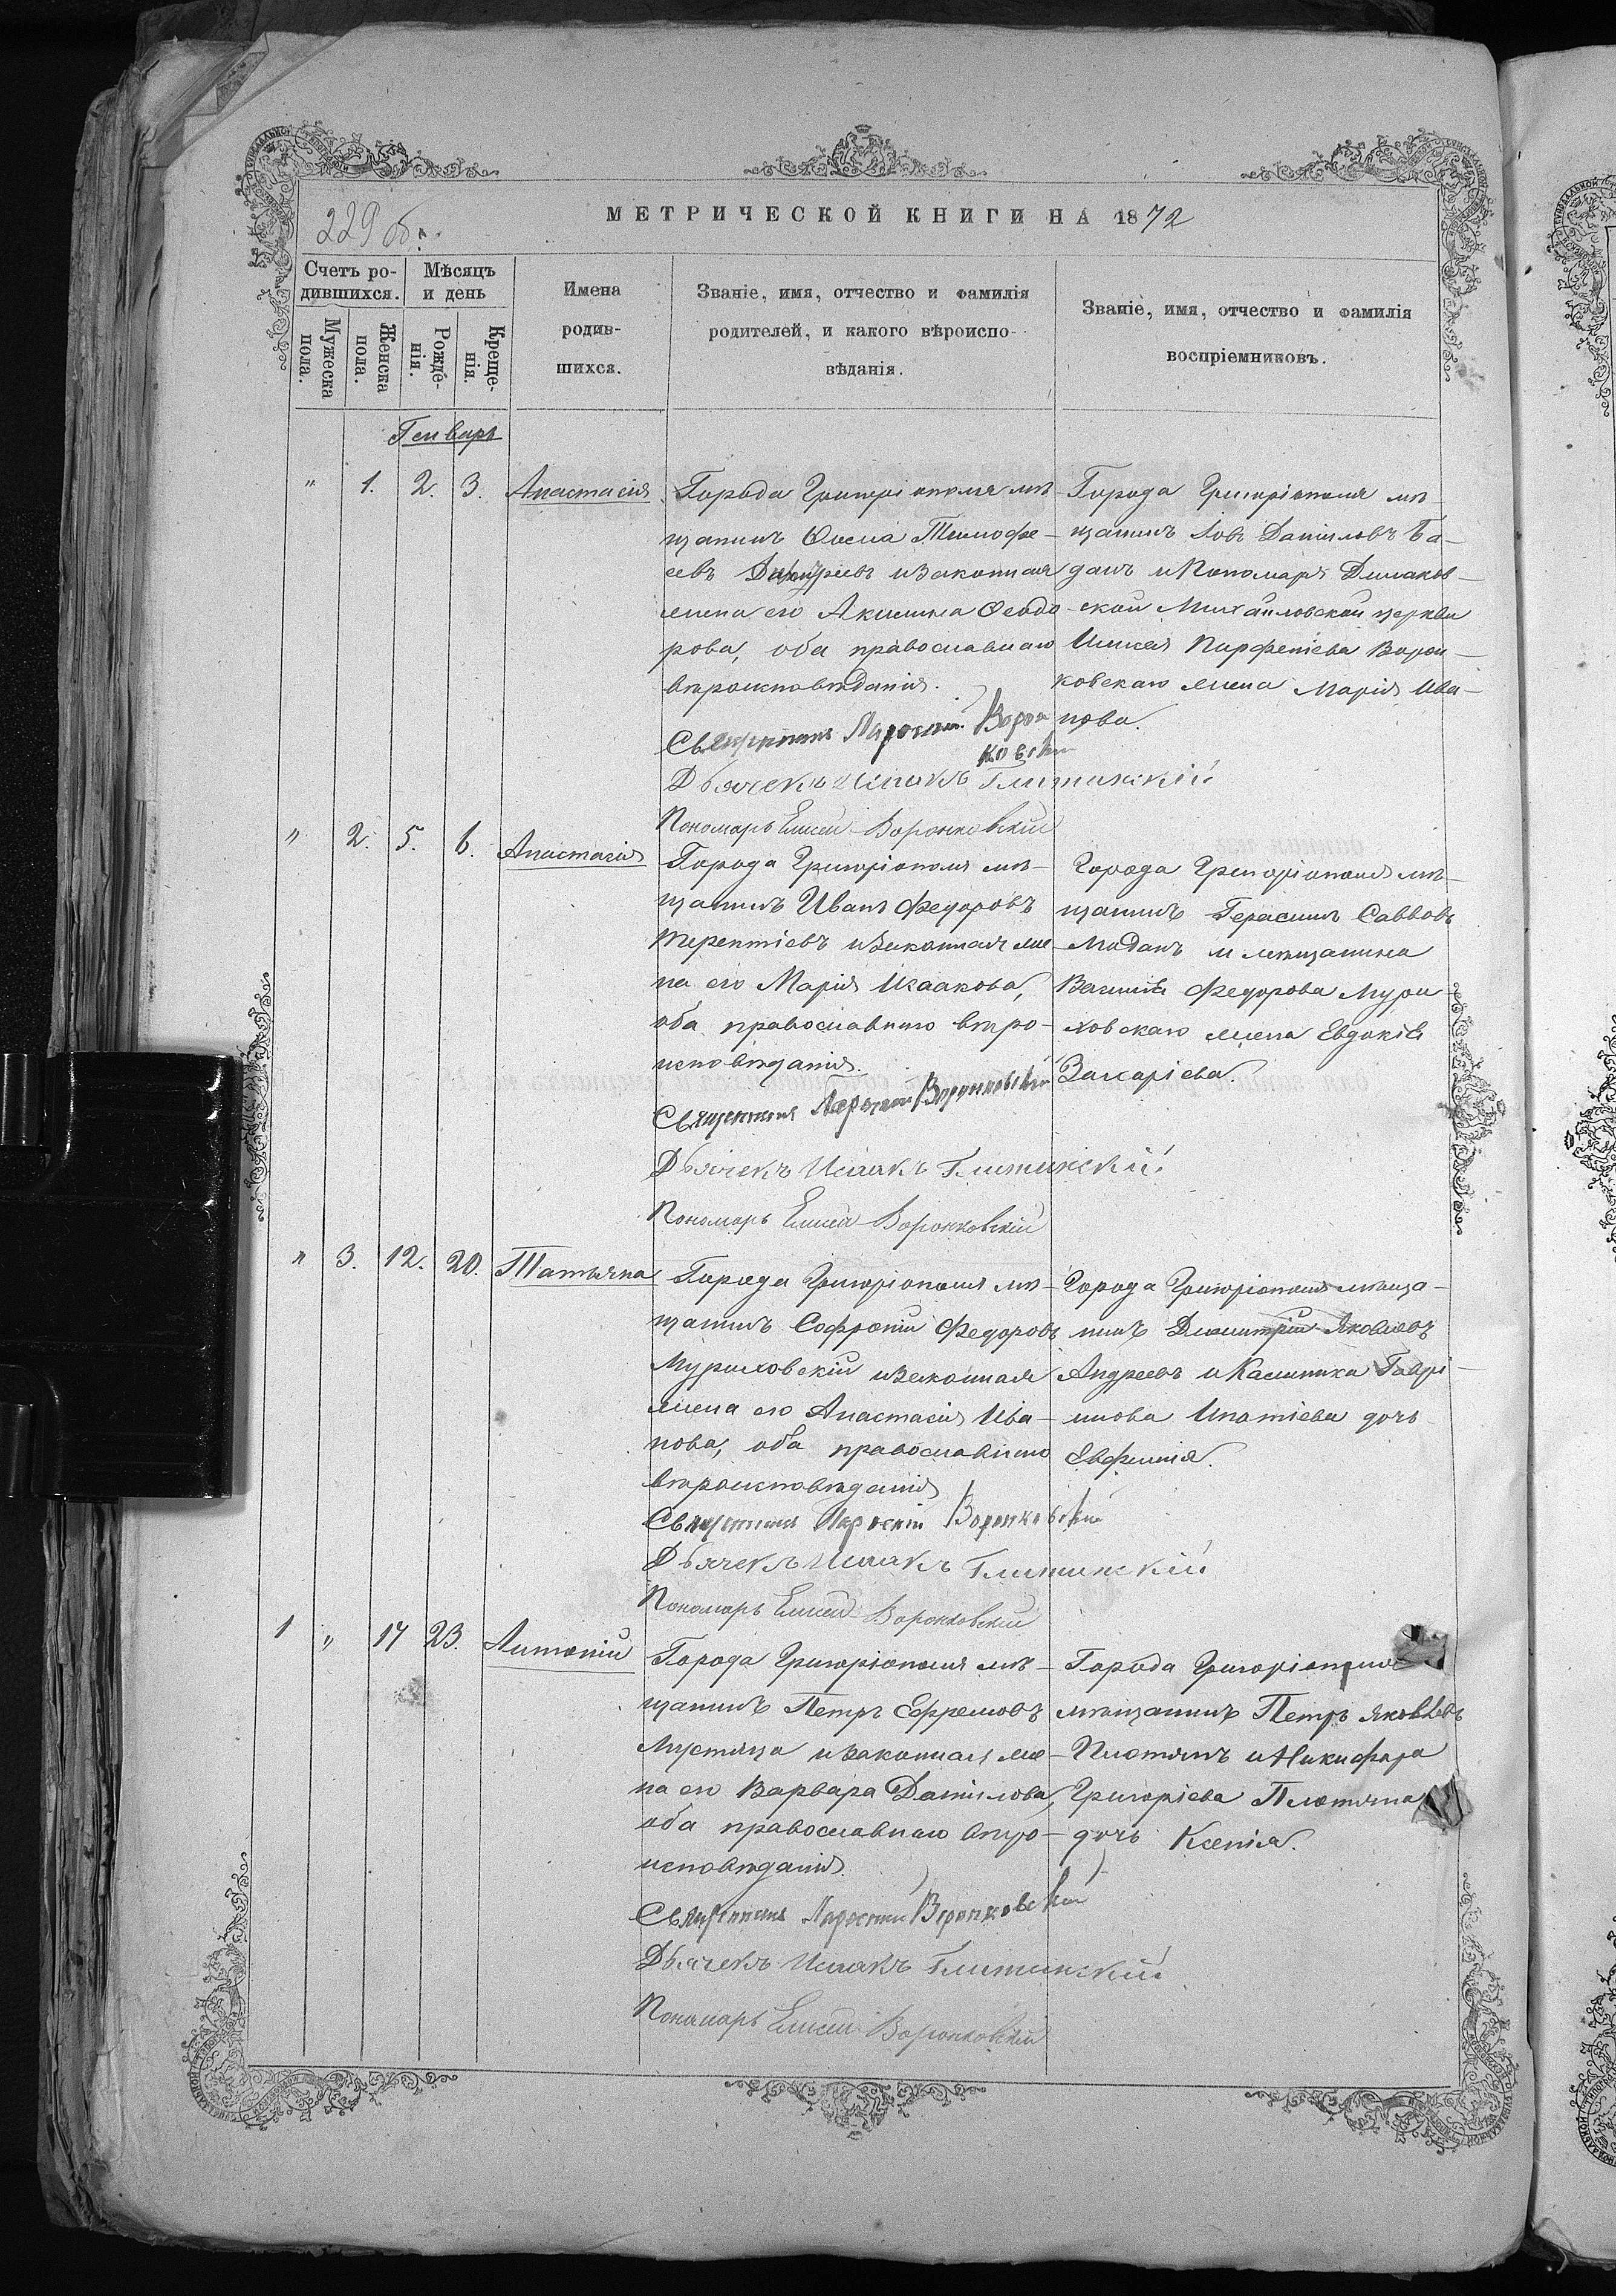 229 об.
МЕТРИЧЕСКОЙ КНИГИ НА 1872
Счетъ ро-
дившихся.
Мѣсяцъ
и день
Мужеска
пола.
Женска
пола.
Рожде-
нія.
Креще-
нія.
Имена
родив-
шихся.
Званіе, имя, отчество и фамилія
родителей, и какого вѣроиспо-
вѣданія.
Званіе, имя, отчество и фамилія
воспріемниковъ.
Генварь
" 1. 2. 3. Анастасія
Города Григоріополя мѣ-
щанинъ Ѳома Тимофе-
евъ и законная
жена его Акилина Ѳеодо-
рова, оба православнаго
вѣроисповѣданія.
Священникъ Воронковскій
Дьячекъ Исаакъ Глитинскій
Пономарь Елисей Воронковскій
Города Григоріополя мѣ-
щанинъ Іовъ Даніиловъ Ба-
данъ и Пономаря
ской Михайловской церкви
Елисея Парфеніева Ворон-
ковскаго жена Марія Ива-
нова.
" 2. 5. 6. Анастасія
Города Григоріополя мѣ-
щанинъ Иванъ Федоровъ
Терентіевъ и законная же-
на его Марія Исаакова,
оба православнаго вѣро-
исповѣданія.
Священникъ Воронковскій
Дьячекъ Исаакъ Глитинскій
Пономарь Елисей Воронковскій
Города Григоріополя мѣ-
щанинъ Герасимъ Саввовъ
Маданъ и мѣщанина
Василія Федорова Мури-
ховскаго жена Евдокія
Захаріева.
" 3. 12. 20. Татьяна
Города Григоріополя мѣ-
щанинъ Софроній Федоровъ
Муриховскій и законная
жена его Анастасія Ива-
нова, оба православнаго
вѣроисповѣданія
Священникъ Воронковскій
Дьячекъ Исаакъ Глитинскій
Пономарь Елисей Воронковскій
Города Григоріополя мѣща-
нинъ Димитрій Яковлевъ
Андреевъ и Калиника Гаврі-
илова Ипатіева дочь
Евфимія.
1 " 17 23. Антоній
Города Григоріополя мѣ-
щанинъ Петръ Ефремовъ
Лустяца и законная же-
на его Варвара Даніилова,
оба православнаго вѣро-
исповѣданія.
Священникъ Воронковскій
Дьячекъ Исаакъ Глитинскій
Пономарь Елисей Воронковскій
Города Григоріополя
мѣщанинъ Петръ Яковлевъ
Плотянъ и Никифора
Григоріева Плотяна
дочь Ксенія.